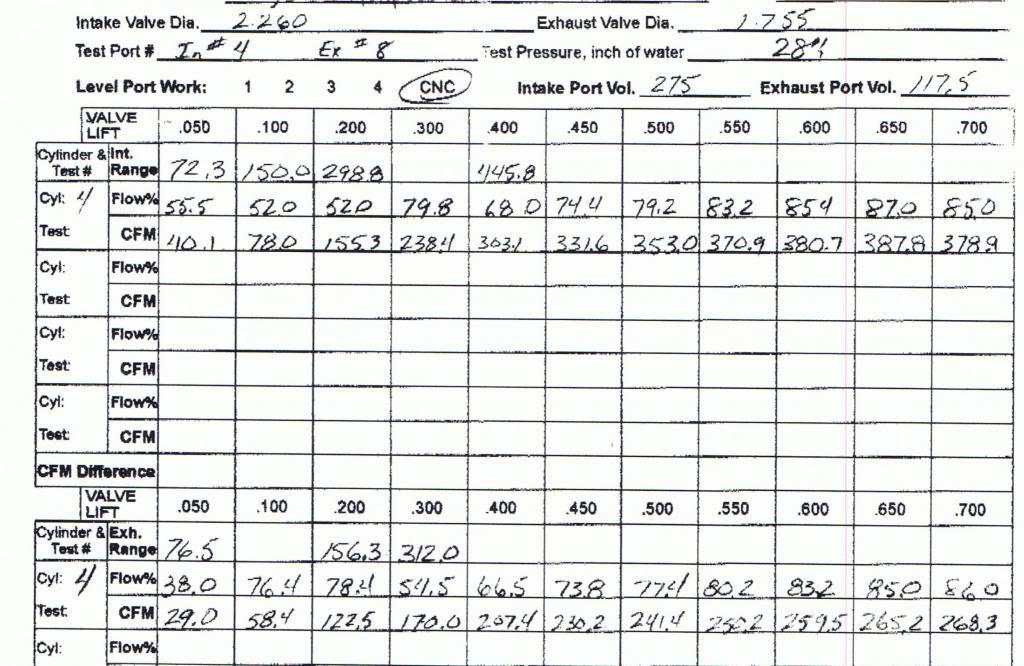 Intake Valve Dia. 2.260 Exhaust Valve Dia. 1.755
Test Port # In #4 Ex #8 Test Pressure, inch of water 28"
Level Port Work: 1 2 3 4 CNC Intake Port Vol. 275 Exhaust Port Vol. 117.5
VALVE LIFT .050 .100 .200 .300 .400 .450 .500 .550 .600 .650 .700
Cylinder & Test # Int. Range 72.3 150.0 298.8 445.8
Cyl: 4 Flow% 55.5 52.0 52.0 79.8 68.0 74.4 79.2 83.2 85.4 87.0 85.0
Test: CFM 40.1 78.0 155.3 238.4 303.1 331.6 353.0 370.9 380.7 387.8 378.9
Cyl: Flow%
Test: CFM
Cyl: Flow%
Test: CFM
Cyl: Flow%
Test: CFM
CFM Difference
VALVE LIFT .050 .100 .200 .300 .400 .450 .500 .550 .600 .650 .700
Cylinder & Test # Exh. Range 76.5 156.3 312.0
Cyl: 4 Flow% 38.0 76.4 78.4 54.5 66.5 73.8 77.4 80.2 83.2 85.0 86.0
Test: CFM 29.0 58.4 122.5 170.0 207.4 230.2 241.4 250.2 259.5 265.2 268.3
Cyl: Flow%